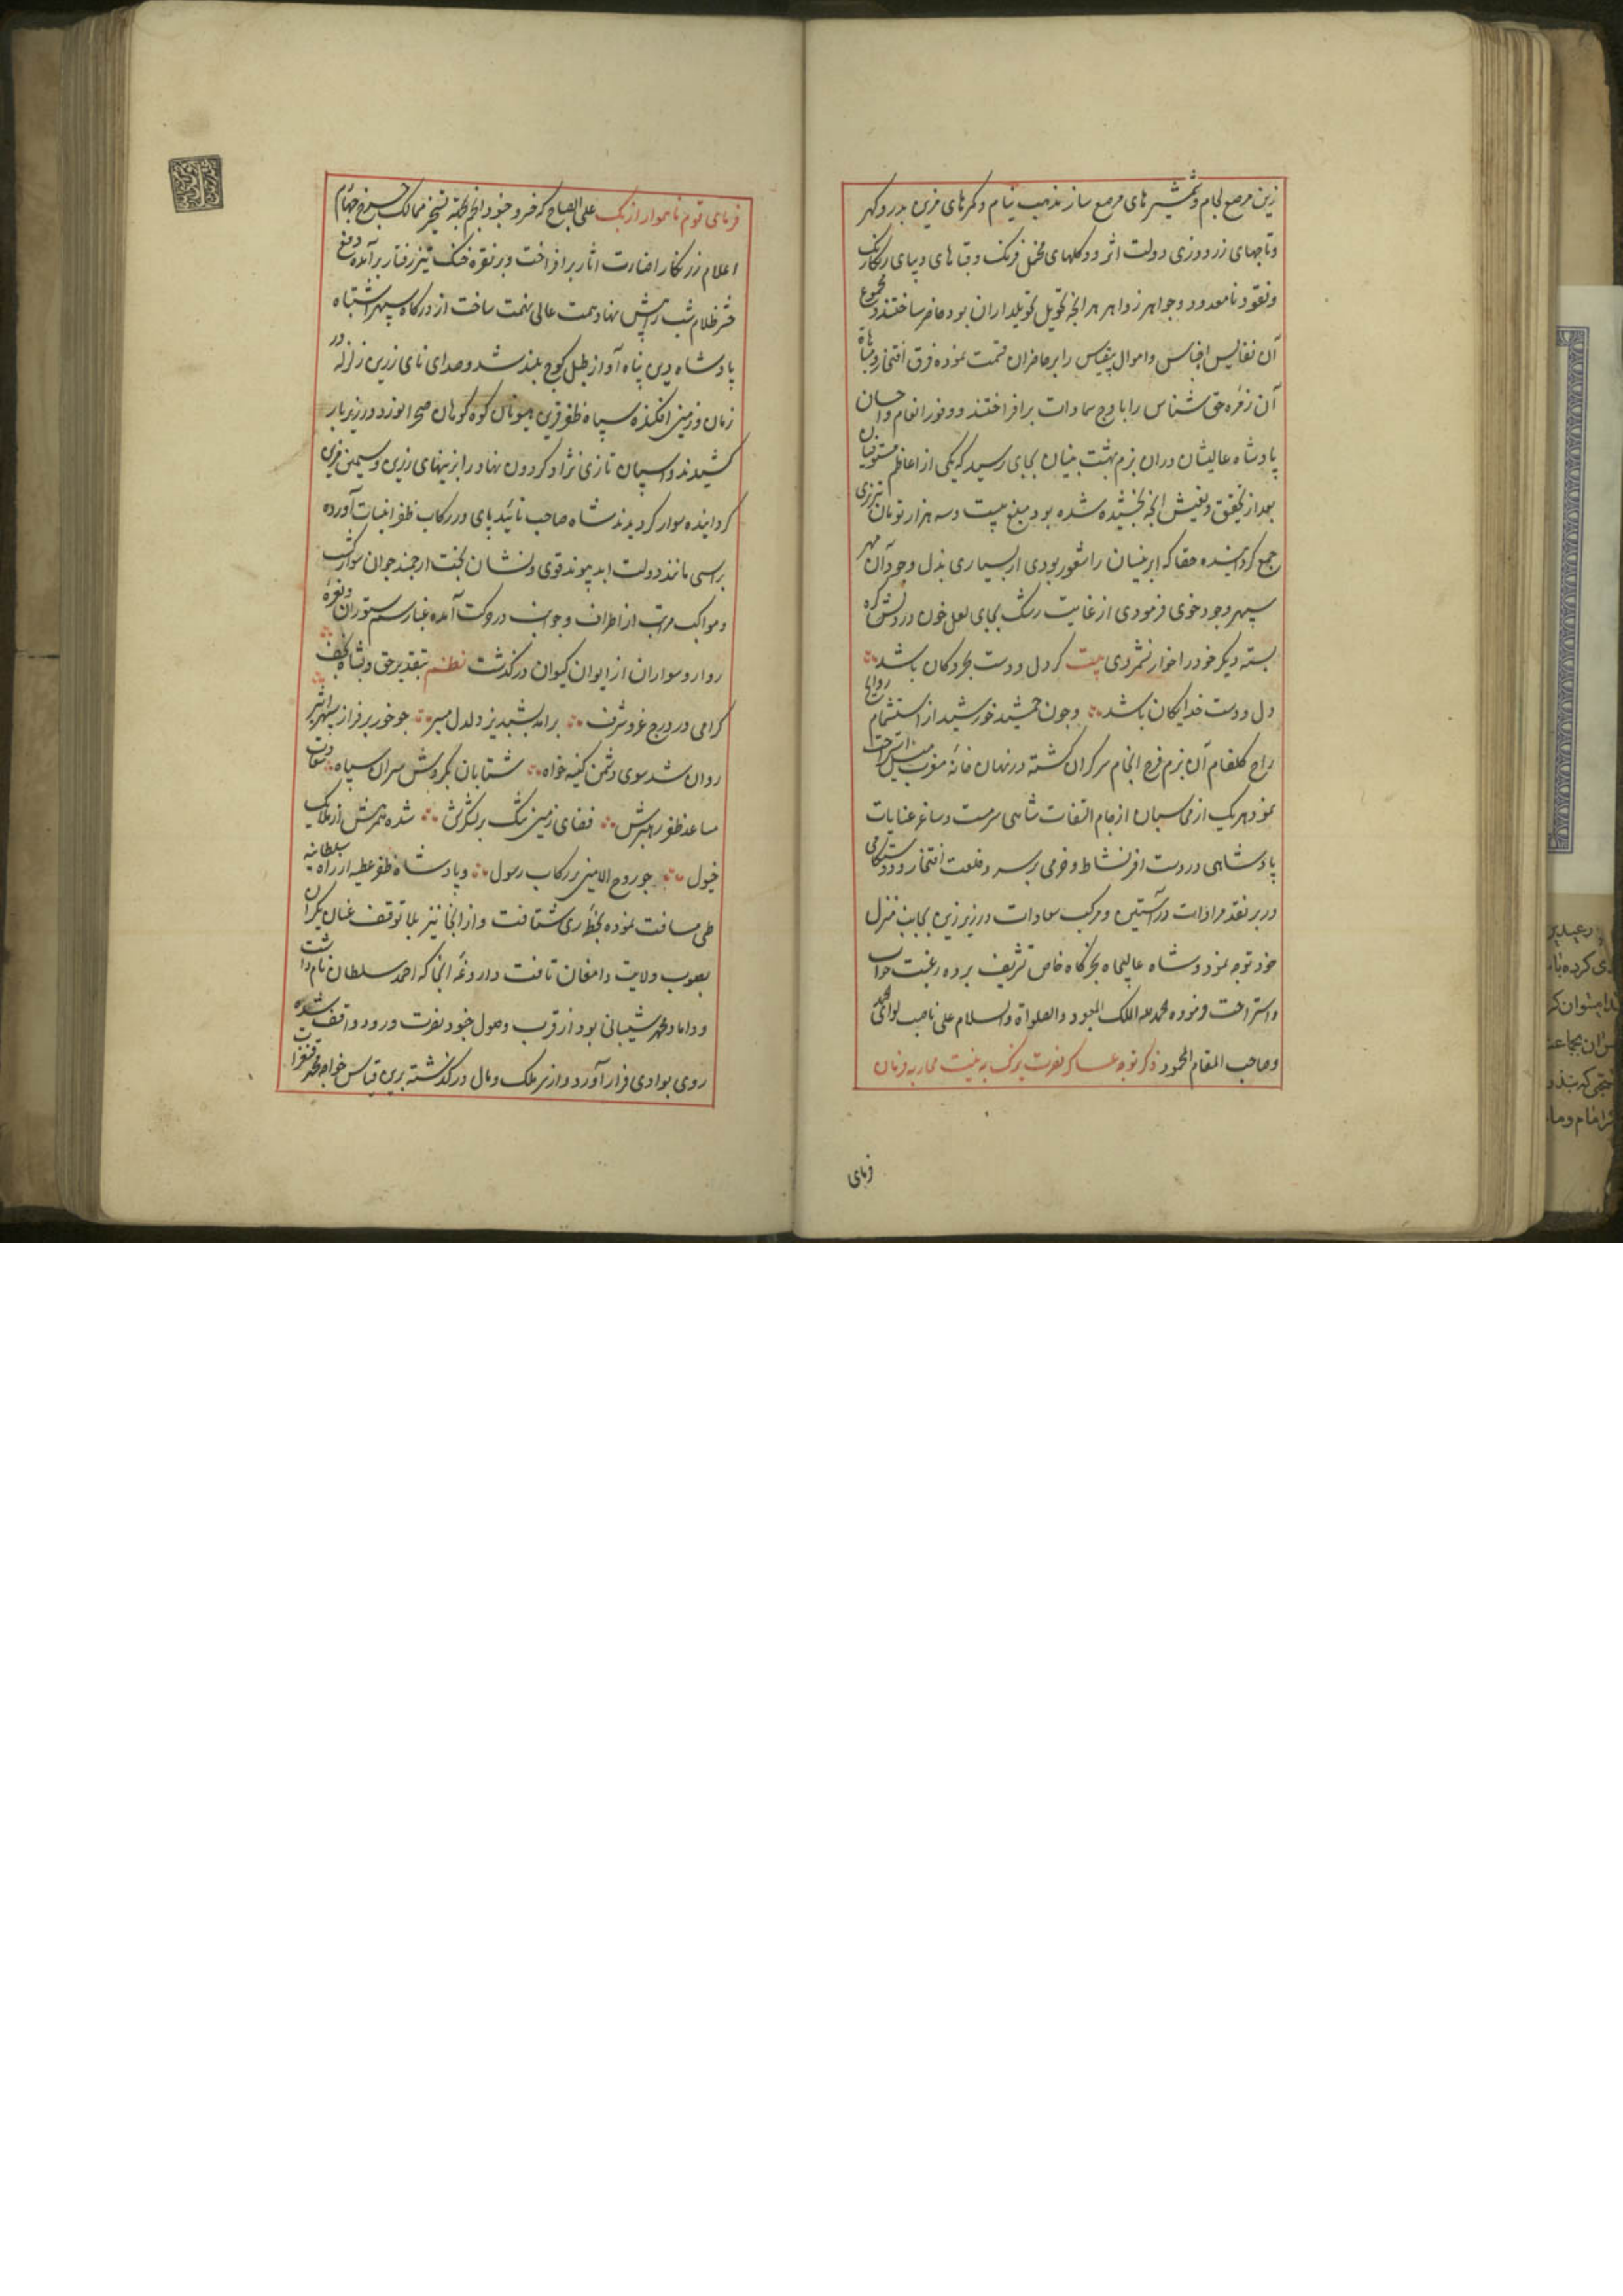 زین مرصع لجام و شمشیرهای مرصع ساز مذهب نیام و کمرهای مزین بدر و کهر
و تاجهای زردوزی دولت اثر و دکلهای مخمل فرنک و قباهای دیبای رنکارنک
و نقود نامعدود و جواهر زواهر هر انجه تحویل تحویلداران بود حاضر ساختند و مجموع
آن نفایس اجناس و اموال بیقیاس را بر حاضران قسمت نموده فرق افتخار و مباهات
آن زمرهٔ حق شناس را باوج سماوات برافراختند و وفور انعام و احسان
پادشاه عالیشان دران بزم بهشت نشان بجای رسید که یکی از اعاظم مستوفیان
بعد از تحقیق و تفتیش انجه بخشیده شده بود مبلغ بیست و سه هزار تومان تبریزی
جمع کردانیده حقا که ابر نیسان را شعور بودی از بسیاری بذل و جود آن مهر
سپهر وجود خوی فرمودی از غایت رشک بجای لعل خون در دلش کره
بسته دیکر خود را خوار نشمردی بیت کر دل و دست بحر و کان باشد
دل و دست خدایکان باشد و جون جمشید خورشید از استشمام روایح
راح کلفام آن بزم فرح انجام سرکران کشته در نهان خانهٔ مغرب میل استراحت
نمود هریک از می از جام التفات شاهی سرمست و ساغر عنایات
پادشاهی در دست افسر نشاط و خرمی بر سر و خلعت افتخار و دوستکامی
در بر نقد مرادات در آستین و مرکب سعادات در زیر زین بجانب منزل
خود توجه نمود و شاه عالیجاه بخرکاه خاص تشریف برده رغبت خواب
و استراحت فرموده محمد لله الملک المعبود و الصلواة والسلام علی ناصب لوای الحمد
و صاحب المقام المحمود ذکر توجه عساکر نصرت یزک به نیت محاربه فرمان
فرمای
فرمای قوم ناهموار ازبک علی الصباح که خسرو جنود انجم بجهة تسخیر ممالک جهانم
اعلام زرنکار اضاءت اثار برافراخت و بر نقره خنک تیز رفتار برآمده دفع
حشر ظلام شب را پیش نهاد همت عالی نهمت ساخت از درکاه سپهر اشتباه
پادشاه دین پناه آواز طبل کوج بلند شد و صدای نای زرین زلزله در
زمان و زمین افکنده سپاه ظفر قرین هیونان کوه کوهان صحرا نورد در زیر بار
کشیدند و اسپان تازی نژاد کردون نهاد را بزینهای زرین و سیمین مزین
کردانیده سوار کردیدند شاه صاحب تائید پای در رکاب ظفر انتساب آورده
بر اسبی مانند دولت ابد پیوند قوی و نشان بخت ارجمند جوان سوار کشت
و مواکب مراتب از اطراف و جوانب در حرکت آمده غبار سم ستوران و نعرهٔ
روا رو سواران از ایوان کیوان درکذشت نظم بتقدیر حق و بشاه نجف
کرامی در درج عز و شرف برامد بشبدیز دلدل مسیر جو خور بر فراز سپهر اثیر
روان شد سوی دشمن کینه خواه شتابان بکردش سران سپاه سعادت
مساعد ظفر رهبرش فضای زمین تنک بر لشکرش شده همرهش از ملایک
خیول جو روح الامین در رکاب رسول و پادشاه ظفر عطیه از راه سلطانیه
طی مسافت نموده بخطهٔ ری شتافت و از انجا نیز بلا توقف عنان یکران
بصوب ولایت دامغان تافت داروغهٔ انجا که احمد سلطان نام داشت
و داماد محمد شیبانی بود از قرب وصول جنود نصرت ورود واقف شده
روی بوادی فرار آورد و از سر ملک و مال درکذشته برین قیاس خواجه محمد قنغرات